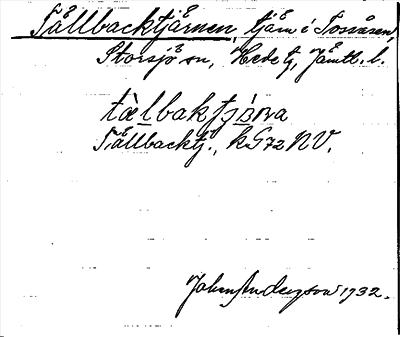 Tållbacktjärnen, tjärn i Tossåsen,
Storsjö sn, Hede tg, Jämtl. l.
tålbaktjärna
Tållbacktj., kG72NV.
John Anderson 1932.